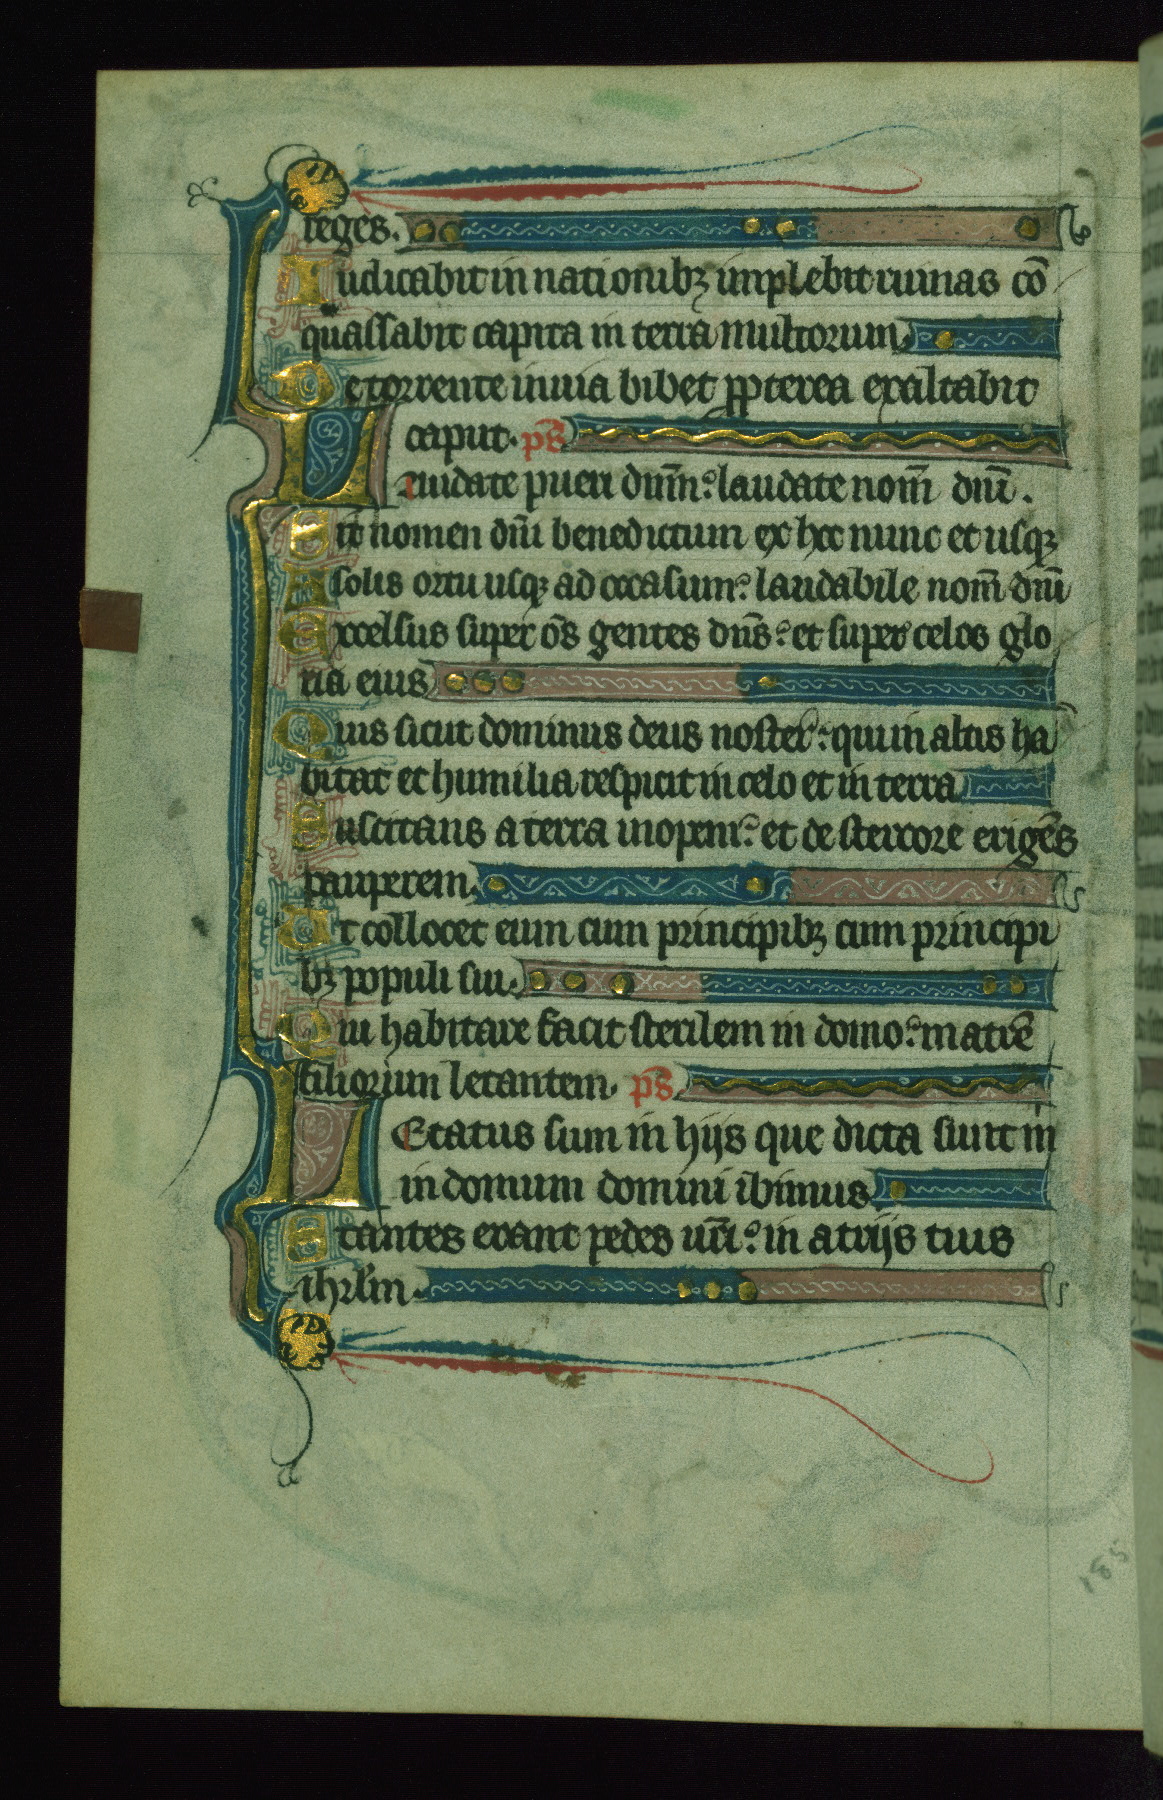 reges.
Iudicabit in nationibꝫ implebit ruinas cō
quassabit capita in terra multorum
De torrente in uia bibet ꝓpterea exaltabit
caput. ps̄
Laudate pueri dn̄m: laudate nom̄ dn̄i.
Sit nomen dn̄i benedictum ex hoc nunc et usqꝫ
A solis ortu usqꝫ ad occasum: laudabile nom̄ dn̄i
Excelsus super om̄s gentes dn̄s: et super celos glo
ria eius
Quis sicut dominus deus noster: qui in altis ha
bitat et humilia respicit in celo et in terra
Suscitans a terra inopem: et de stercore erigēs
pauperem.
Ut collocet eum cum principibꝫ cum principi
bꝫ populi sui.
Qui habitare facit sterilem in domo: matrē
filiorum letantem. ps̄
Letatus sum in hijs que dicta sunt m̍
in domum domini ibimus
Stantes erant pedes nr̄i: in atrijs tuis
ihrl̄m.
185